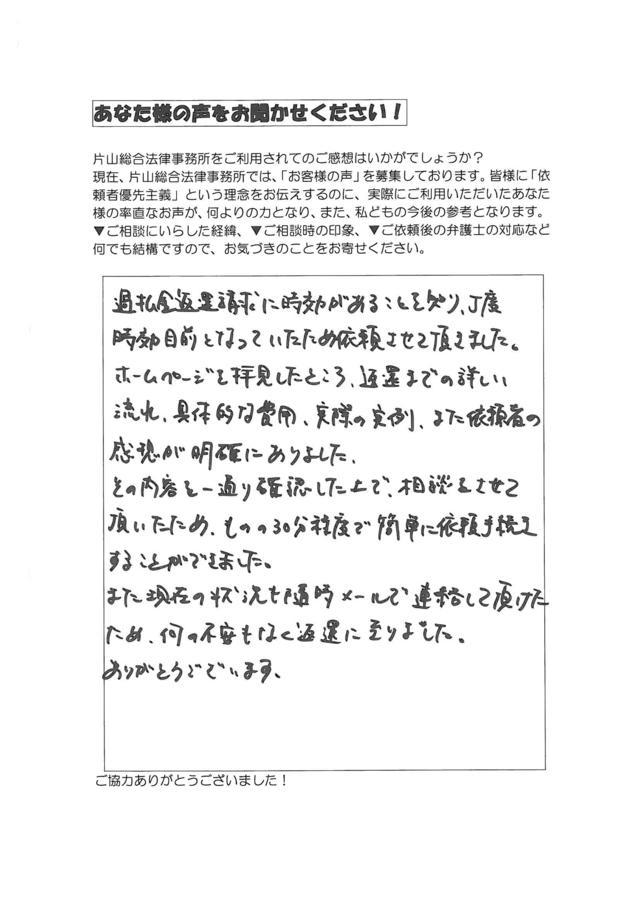 あなた様の声をお聞かせください！
片山総合法律事務所をご利用されてのご感想はいかがでしょうか？
現在、片山総合法律事務所では、「お客様の声」を募集しております。皆様に「依
頼者優先主義」という理念をお伝えするのに、実際にご利用いただいたあなた
様の率直なお声が、何よりの力となり、また、私どもの今後の参考となります。
▼ご相談にいらした経緯、▼ご相談時の印象、▼ご依頼後の弁護士の対応など
何でも結構ですので、お気づきのことをお寄せください。
過払金返還請求に時効があることを知り、丁度
時効目前となっていたため依頼させて頂きました。
ホームページを拝見したところ、返還までの詳しい
流れ、具体的な費用、実際の実例、また依頼者の
感想が明確にありました。
その内容を一通り確認した上で、相談をさせて
頂いたため、ものの30分程度で簡単に依頼手続を
することができました。
また現在の状況も随時メールで連絡して頂けた
ため、何の不安もなく返還に至りました。
ありがとうございます。
ご協力ありがとうございました！